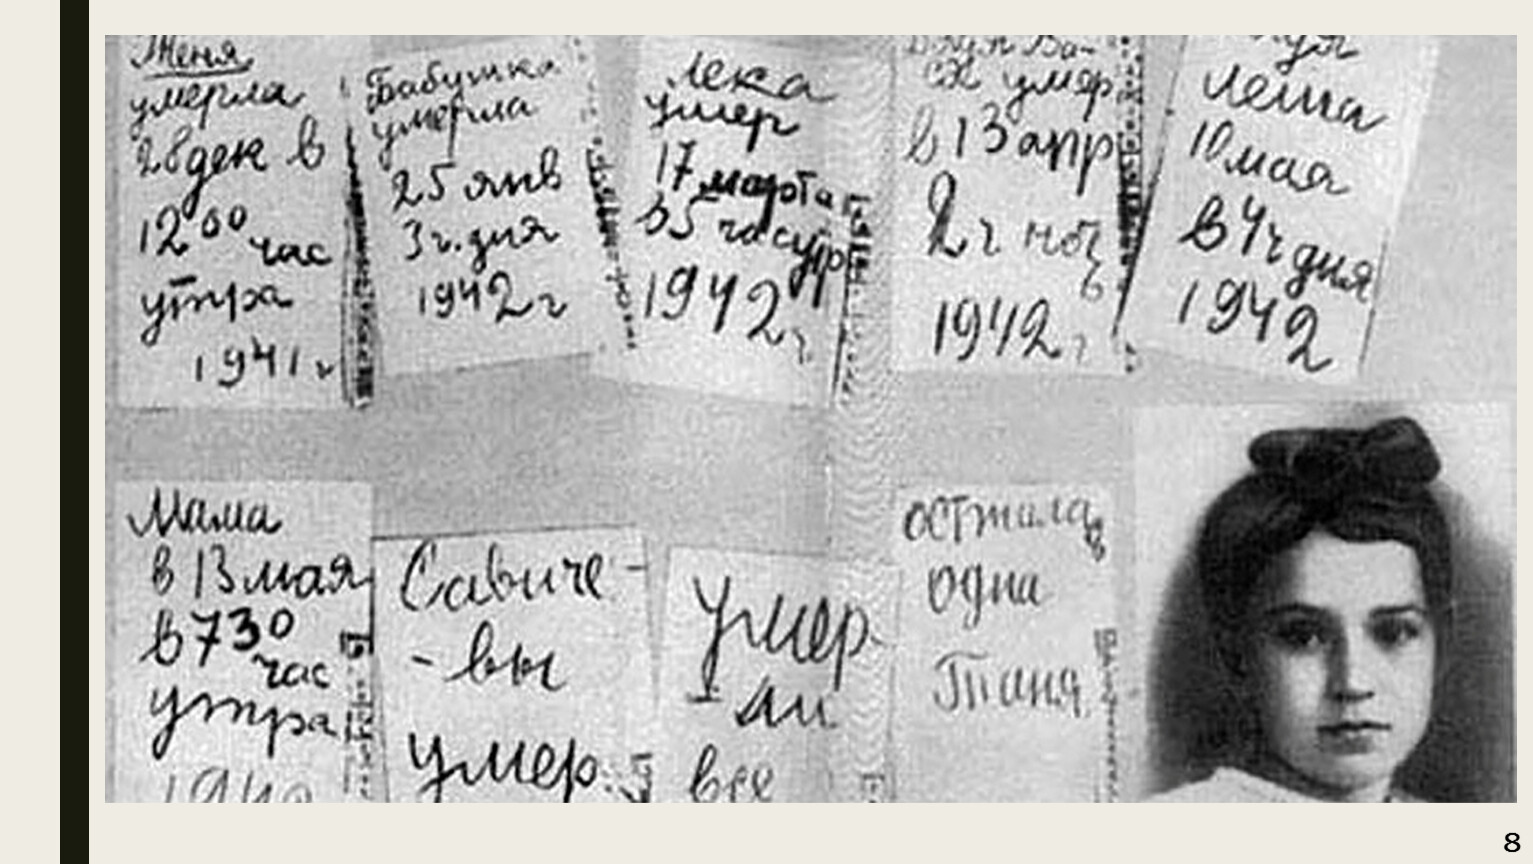 Женя
умерла
28 дек в
12 00 час
утра
1941 г
Бабушка
умерла
25 янв
3 ч. дня
1942 г
Лека
умер
17 марта
в 5 час утр
1942 г.
Дядя Ва-
ся умер
в 13 апр
2 ч ноч
ь
1942 г
Дядя
Леша
10 мая
в 4 ч дня
1942
Мама
в 13 мая
в 7 30
час
утра
1942
Савиче-
- вы
умер.
Умер
- ли
все
осталась
одна
Таня
8